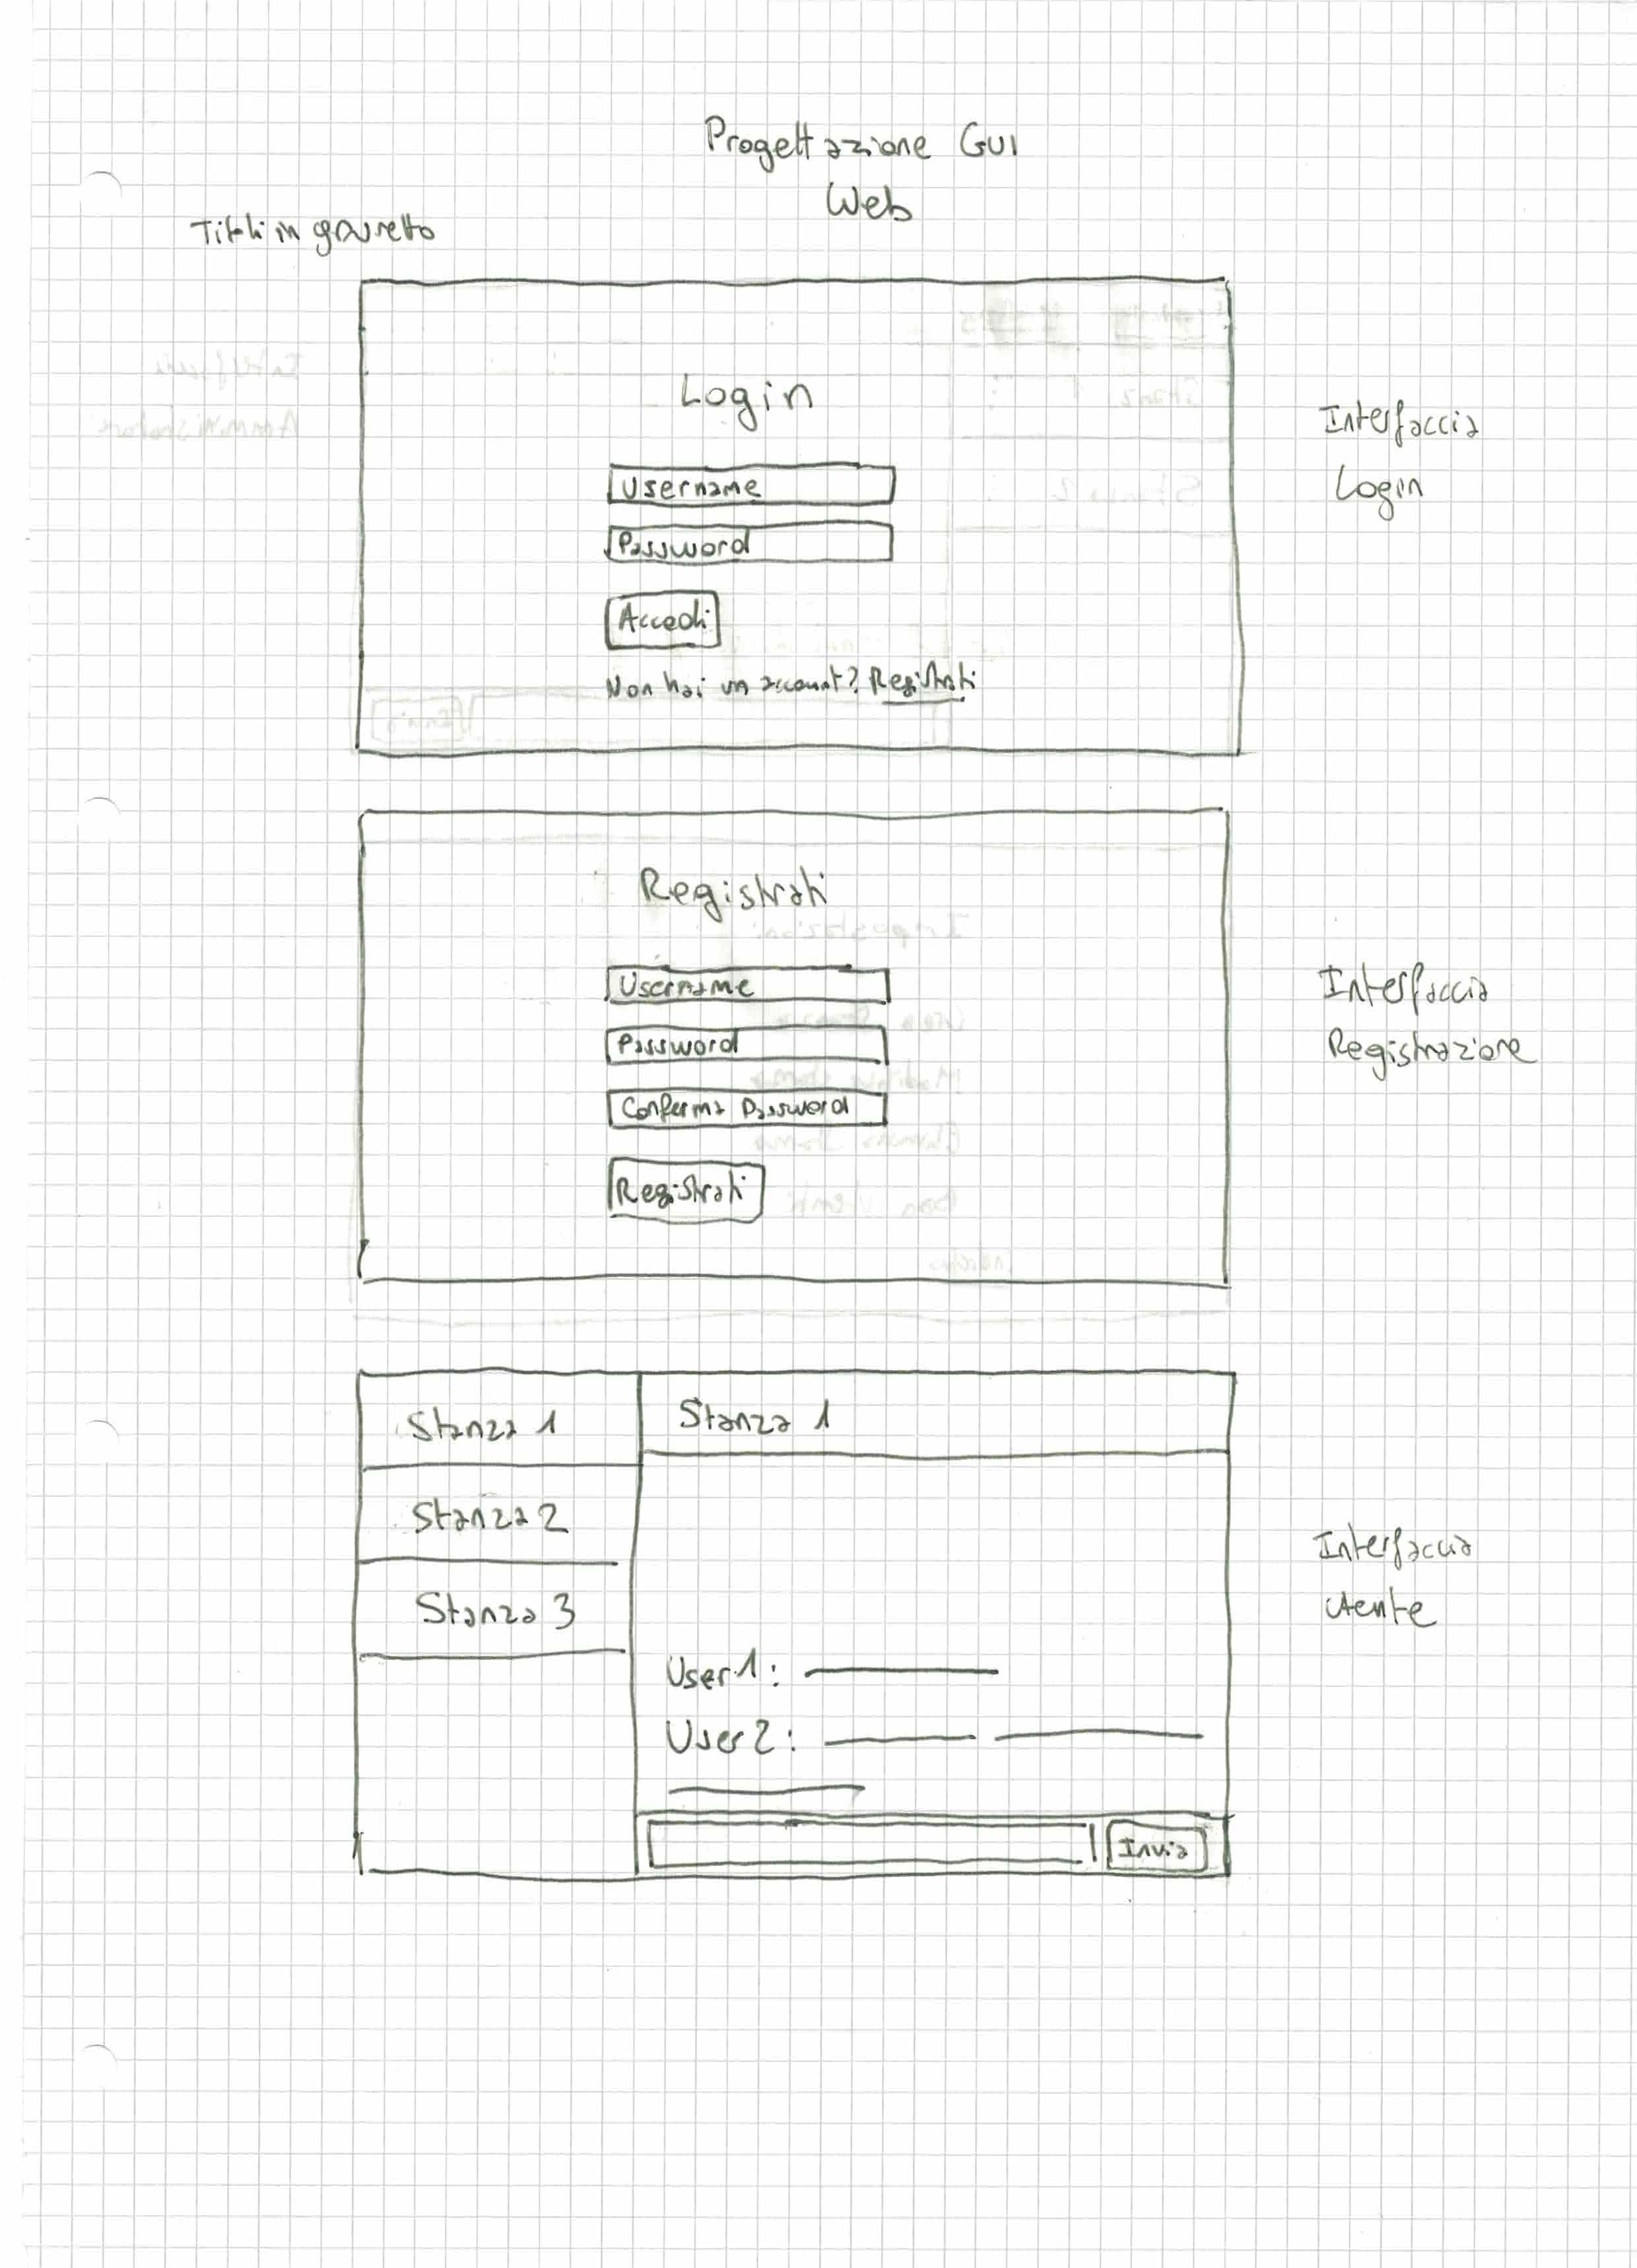 Progettazione GUI
Web
Titoli in grassetto
Login
Username
Password
Accedi
Non hai un account? Registrati
Interfaccia
Login
Registrati
Username
Password
Conferma Password
Registrati
Interfaccia
Registrazione
Stanza 1
Stanza 2
Stanza 3
Stanza 1
User 1:
User 2:
Invia
Interfaccia
utente